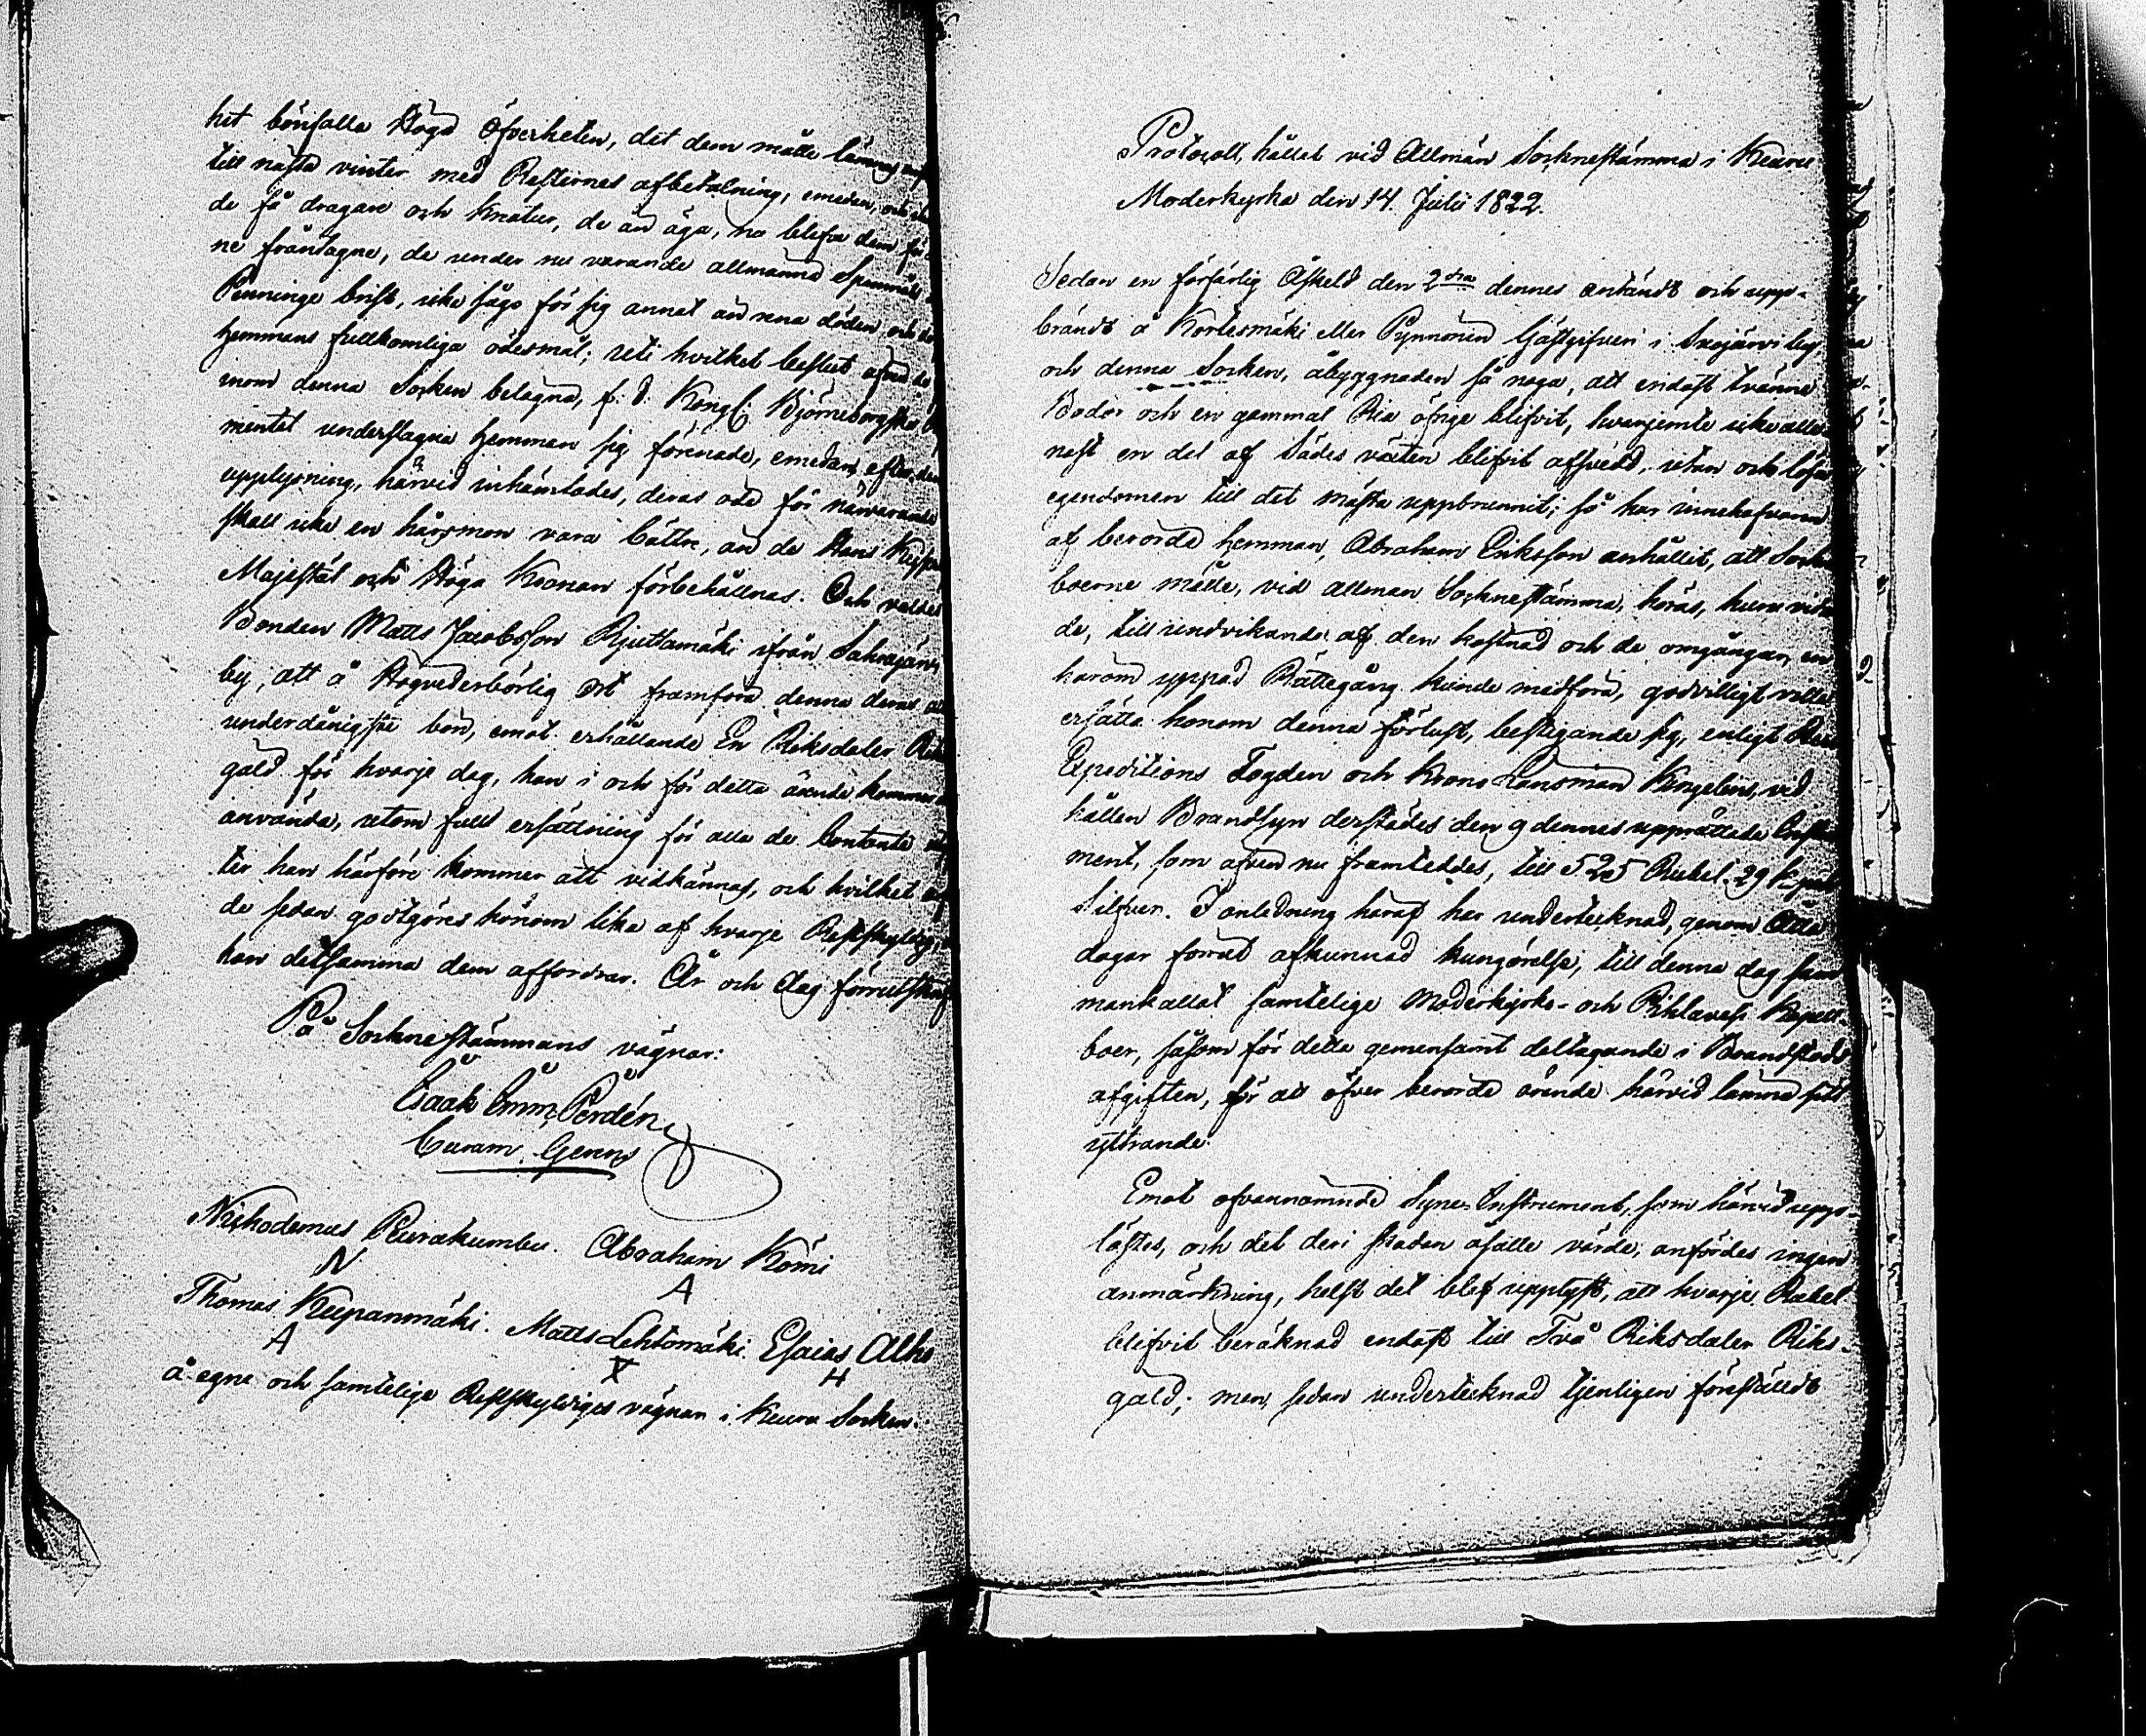 het bönfalla Höga Öfverheten, det dem måtte lämnas
till nästa vinter med Resternes afbetalning, emedan, och
de få dragare och Kreatur, de än äga, nu blefve dem
ne fråntagne, de under nu varande allmänna Spannmåls
Penninge brist, icke sågo för sig annat än rena döden och
hemmans fullkomliga ödesmål; uti hvilket beslut äfven de
inom denna Socken belägna, f. d. Kongl. Björneborgska
mentet underslagna hemman sig förenade, emedan, efter den
upplysning, härvid inhämtades, deras öde för närvarande
skall icke en hårsmon vara bättre, än de Hans Kejserl
Majestät och Höga Kronan förbehållnas. Och valdes
Bonden Matts Jacobsson Rjuttamäki ifrån
by, att å Högvederbörlig ort framföra denna deras
underdånigste bön, emot erhållande En Riksdaler
gäld för hvarje dag, han i och för detta ärende kommer
använda, utom full ersättning för alla de Contenta
ter han härföre kommer att vidkännas, och hvilket
de sedan godtgöres honom lika af hvarje Restskyldig,
han detsamma dem affordrar. År och dag förrutskrif
På Sockne stämmans vägnar:
Isaak Emm. Perdén
Curam. Gerens
Nickodemus Peurakumbu. Abraham Kömi
N A
Thomas Keepanmäki. Matts Lehtomäki. Esaias Alho
A X H
å egne och samtelige Restskyldiges vägnar i Keuru Socken.
Protocoll, hållet vid Allmän Sockne stämma i Keuru
Moderkyrka den 14. Julii 1822.
Sedan en förfärlig Åskeld den 2dra dennes antändt och upp-
brändt å Kortesmäki eller Pynnönen Gästgifveri i by,
och denna Socken, åbyggnaden så noga, att endast tvänne
Bodor och en gammal Ria öfrige blifvit, hvarjemte icke alle-
nast en del af Sädes växten blifvit afsvedd, utan och lösa
egendomen till det mästa uppbrunnit; så har innehafvaren
af berörde hemman, Abraham Eriksson anhållit, att Socken
boerne måtte, vid allmän Sockne stämma, höras, huru vida
de, till undvikande af den kostnad och de omgångar, en
härom yppad Rättegång kunde medföra, godvilligt ville
ersätta honom denna förlust, bestigande sig, enligt
Expeditions Fogden och Krono Länsman Kingelins, vid
hållen Brandsyn derstädes den 9 dennes upprättade Instru
ment, som äfven nu framteddes, till 525 Rubel. 29 kop
Silfver. I anledning häraf har undertecknad, genom Åtta
dagar förrut afkunnad kungörelse, till denna dag sam
mankallat samtelige Moderkyrko- och Pihlavesi Kapell-
boer, såsom för detta gemensamt deltagande i Brandstods
afgiften, för att öfver berörde ärende härvid lämna sitt
yttrande.
Emot ofvannämnde Syne-Instrument, som härvid upp-
lästes, och det deri skadan åsatte värde, anfördes ingen
anmärkning, helst det blef upplyst, att hvarje Rubel
blifvit beräknad endast till Två Riksdaler Riks-
gäld; men, sedan undertecknad tjenligen föreställdt